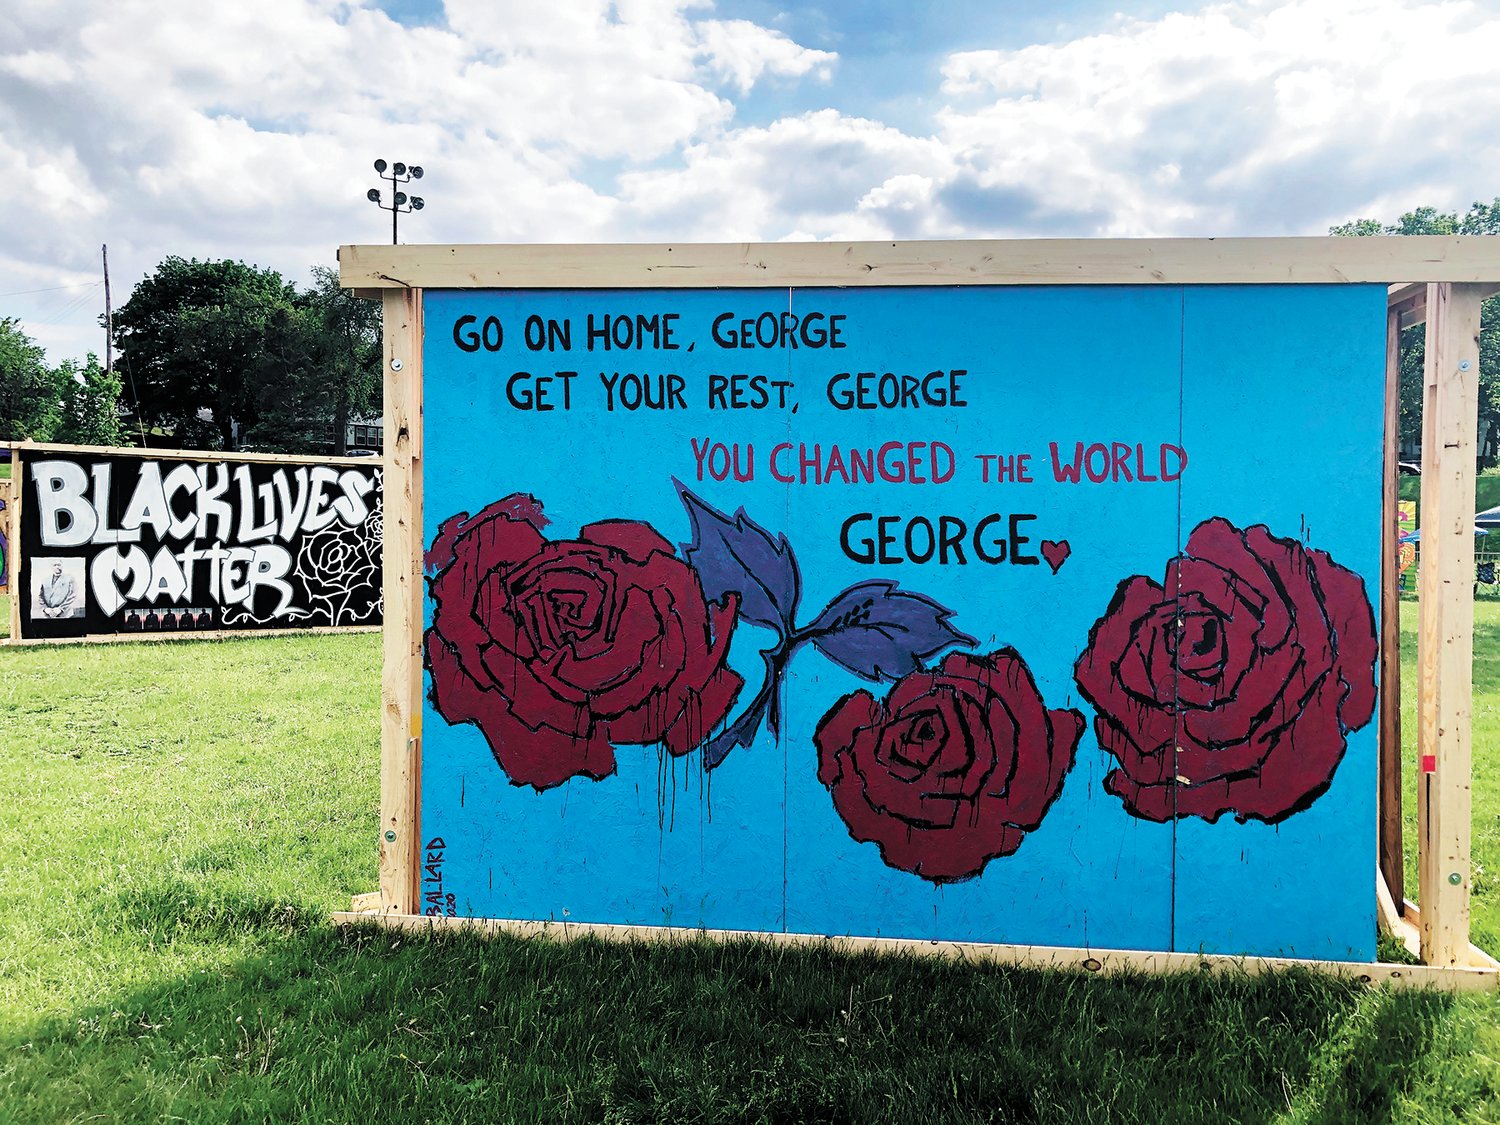 GO ON HOME, GEORGE
GET YOUR REST, GEORGE
YOU CHANGED THE WORLD
GEORGE
BALLARD
BLACK LIVES
MATTER